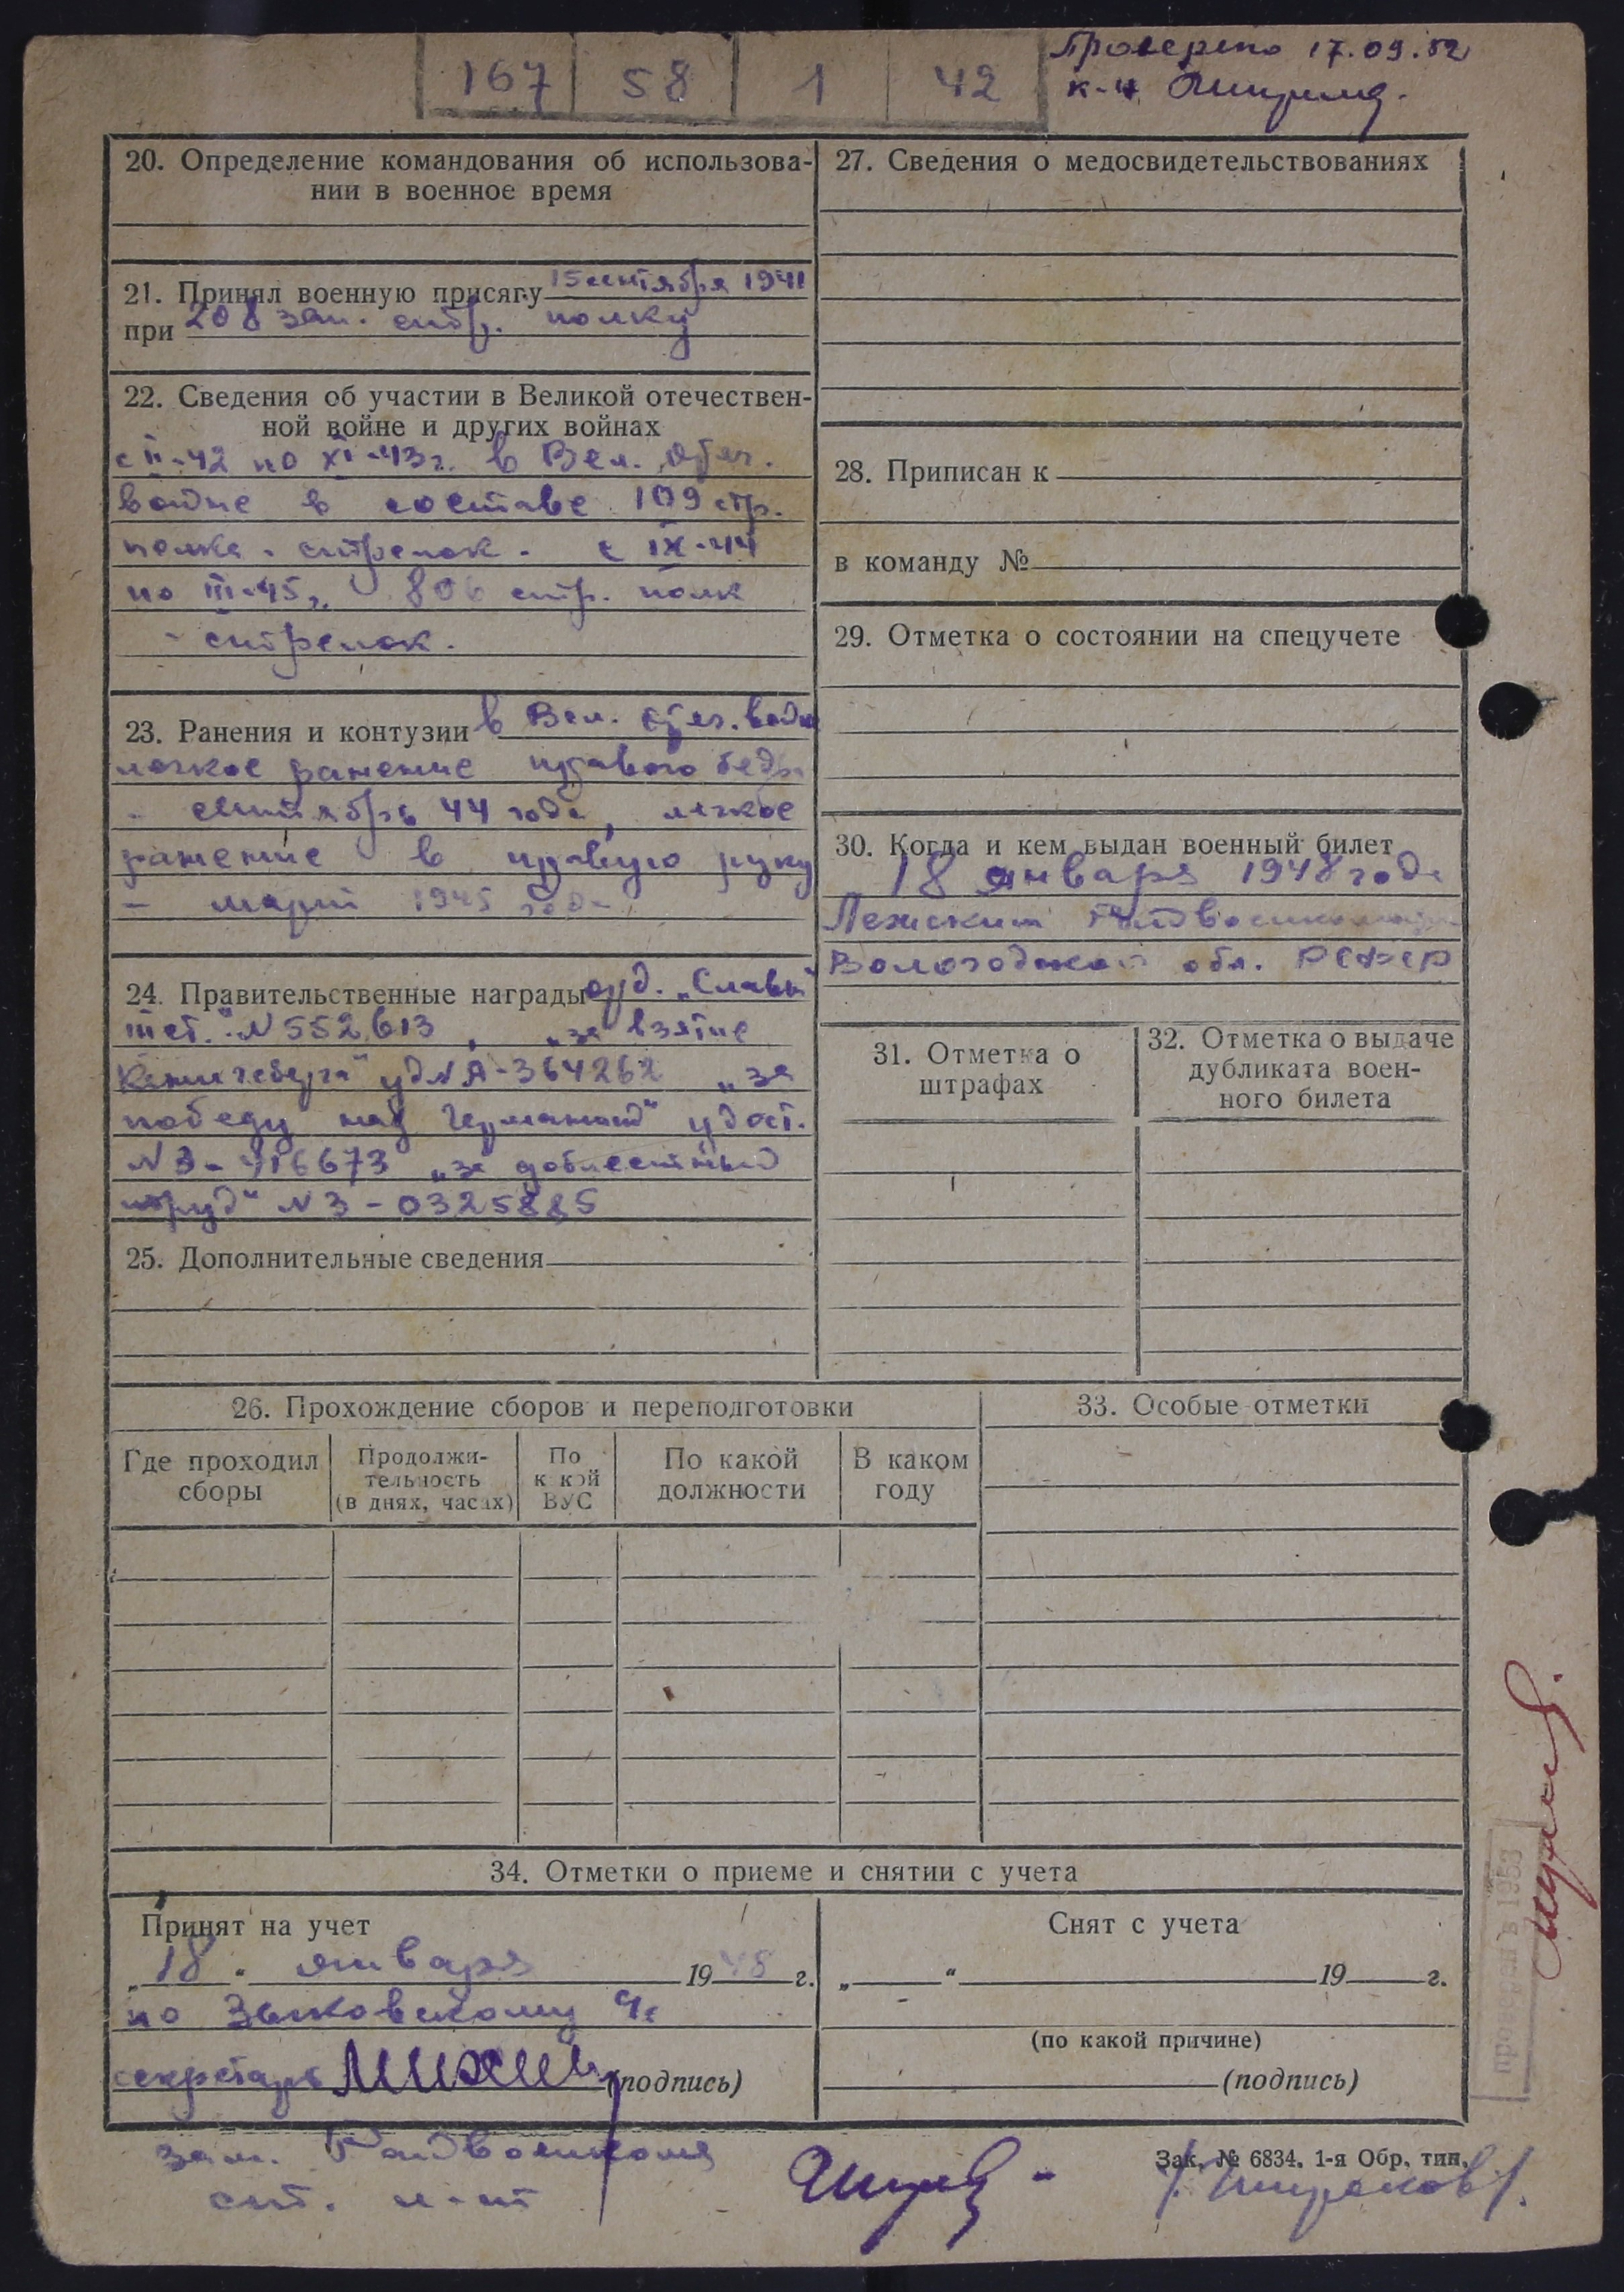 167 58 1 42
Проверено 17.09.52
к-н
20. Определение командования об использова-
нии в военное время
21. Принял военную присягу 15 сентября 1941
при 208 зап. стр. полку
22. Сведения об участии в Великой отечествен-
ной войне и других войнах
с II-42 по XI-43 г. в Вел. Отеч.
войне в составе 109 стр.
полка - стрелок. с IX-44
по III-45 г. 806 стр. полк
- стрелок.
23. Ранения и контузии в Вел. Отеч. войне
легкое ранение правого бедра
- сентябрь 44 года, легкое
ранение в правую руку
- март 1945 года
24. Правительственные награды орд. „Славы
III ст." N 552613, „за взятие
Кенигсберга" уд N А-364262 „за
победу над Германией" удост.
N З-0325885 „за доблестный
труд" N З-0325885
25. Дополнительные сведения
26. Прохождение сборов и переподготовки
Где проходил сборы
Продолжи-
тельность
(в днях, часах)
По какой ВУС
По какой должности
В каком году
27. Сведения о медосвидетельствованиях
28. Приписан к
в команду №
29. Отметка о состоянии на спецучете
30. Когда и кем выдан военный билет
18 января 1948 года
Лежским Райвоенкоматом
Вологодской обл. РСФСР
31. Отметка о
штрафах
32. Отметка о выдаче
дубликата воен-
ного билета
33. Особые отметки
34. Отметки о приеме и снятии с учета
Принят на учет
„18" января 1948 г.
по Зыковскому
секретарь (подпись)
Снят с учета
„ " 19 г.
(по какой причине)
(подпись)
зам. Райвоенкома
ст. л-нт
/Шираков/.
Зак. № 6834. 1-я Обр. тип.
проведен в 1953